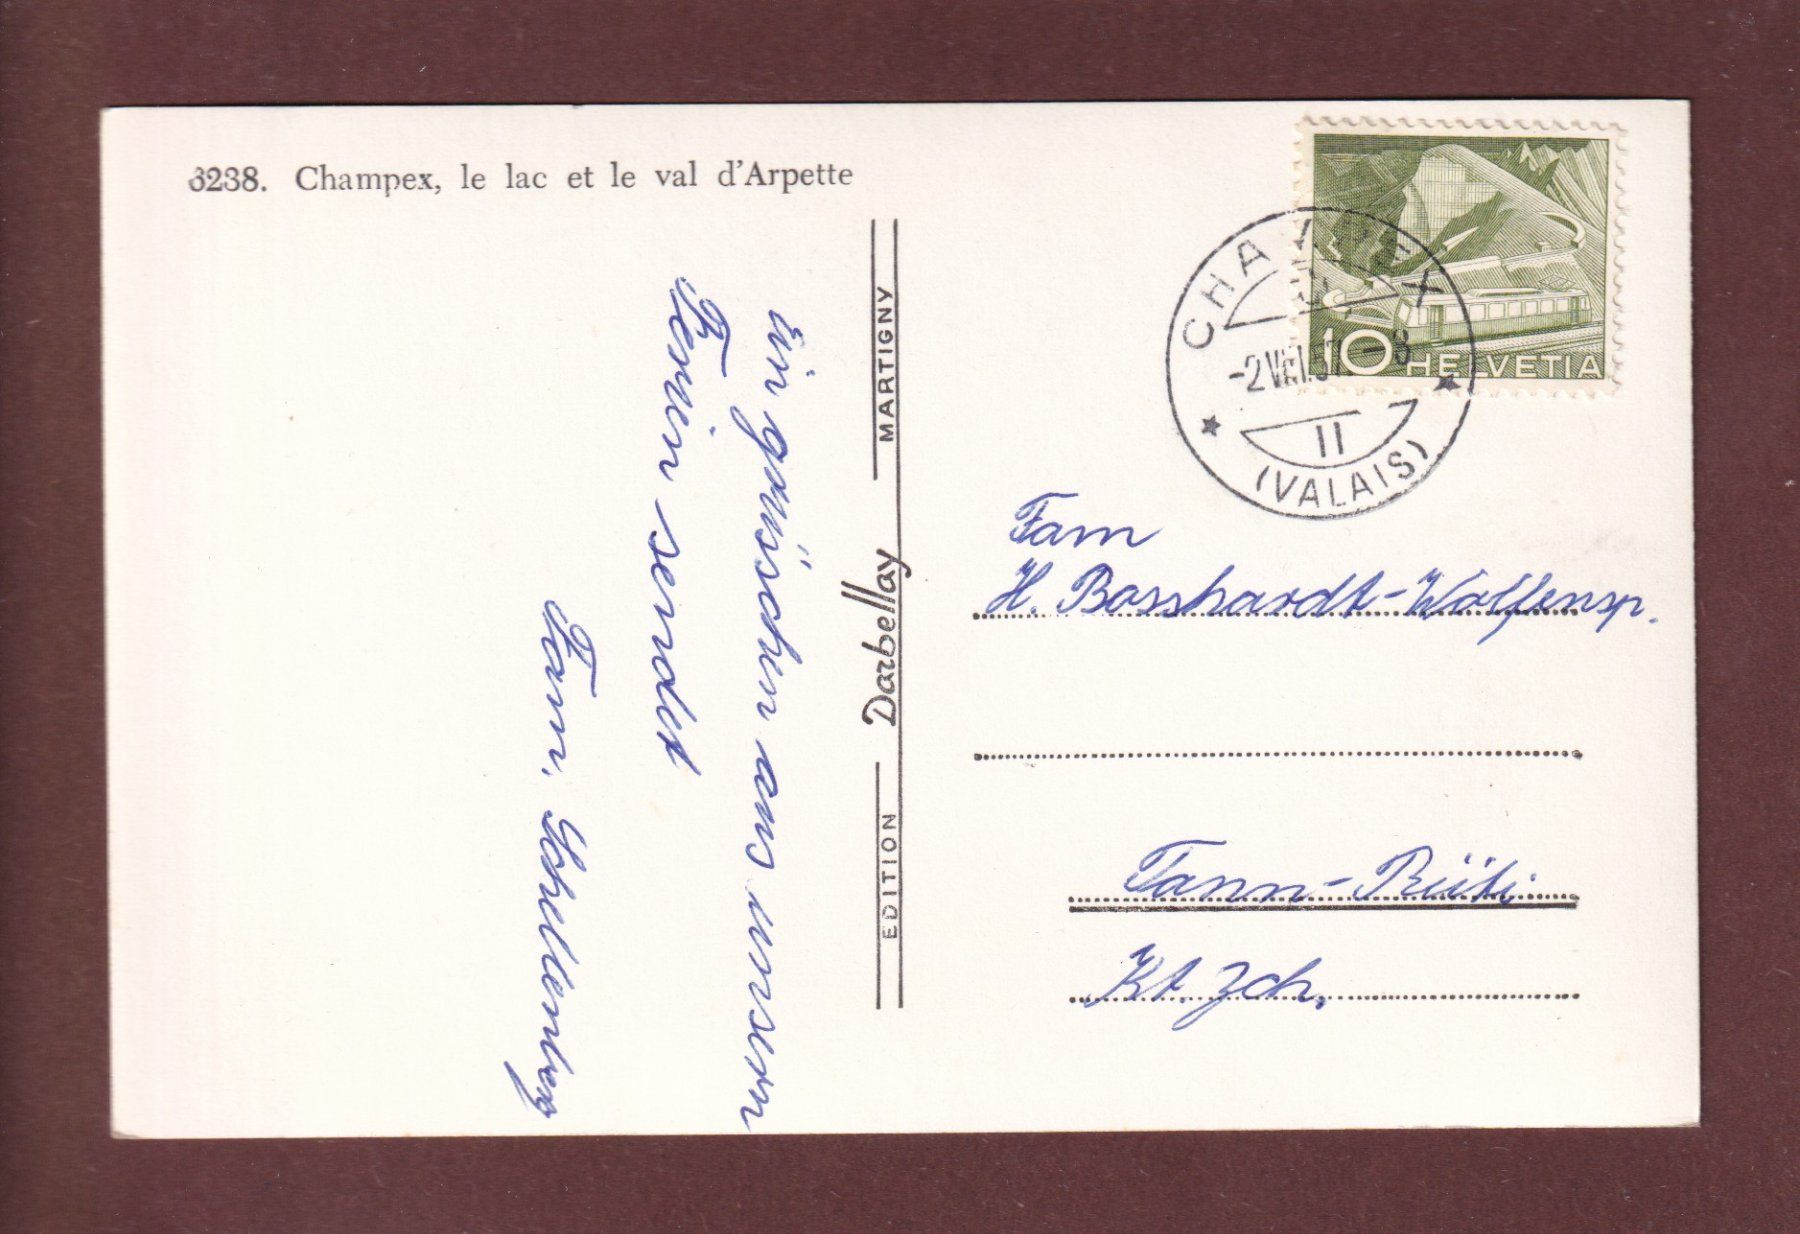 6238. Champex, le lac et le val d'Arpette
Ein grüsschen aus unsern
Ferien sendet
Fam. Schellenberg
EDITION Darbellay MARTIGNY
CHAMPEX
-2.VIII.57 -8
II
(VALAIS)
10 HELVETIA
Fam
H. Bosshardt-Wolfensp.
Tann-Rüti
Kt. Zch.